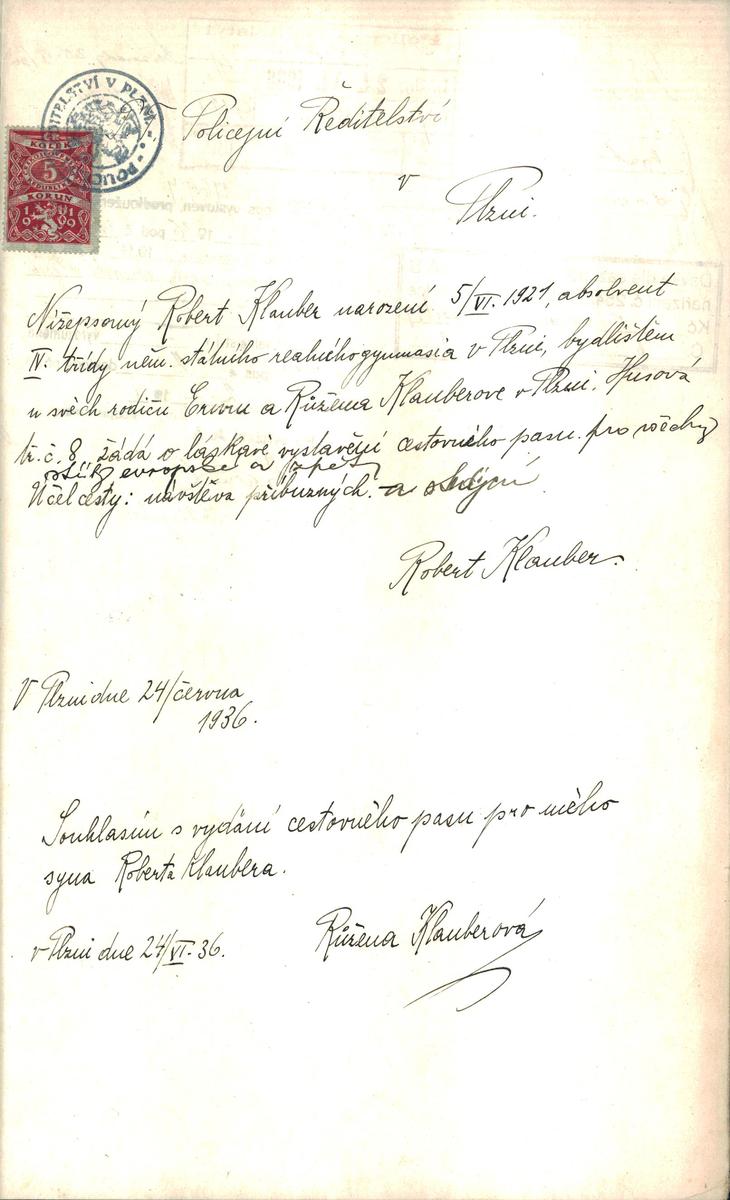 ŘEDITELSTVÍ V PLZNI
POLICEJNÍ
KOLEK
5
KORUN
1919
Policejní Ředitelství
v
Plzni.
Nížepsaný Robert Klauber narození 5/VI. 1921, absolvent
IV. třídy něm. státního reálného gymnasia v Plzni, bydlištěm
u svěch rodiču Ervin a Růžena Klauberove v Plzni, Husová
tr. č. 8, žádá o láskavé vystavění cestovného pasu pro všechny
státy evropské a zpět
Účel cesty: návštěva příbuzných. a studijní
Robert Klauber.
V Plzni dne 24/června
1936.
Souhlasím s vydání cestovného pasu pro mého
syna Roberta Klaubera.
v Plzni dne 24/VI. 36.
Růžena Klauberová